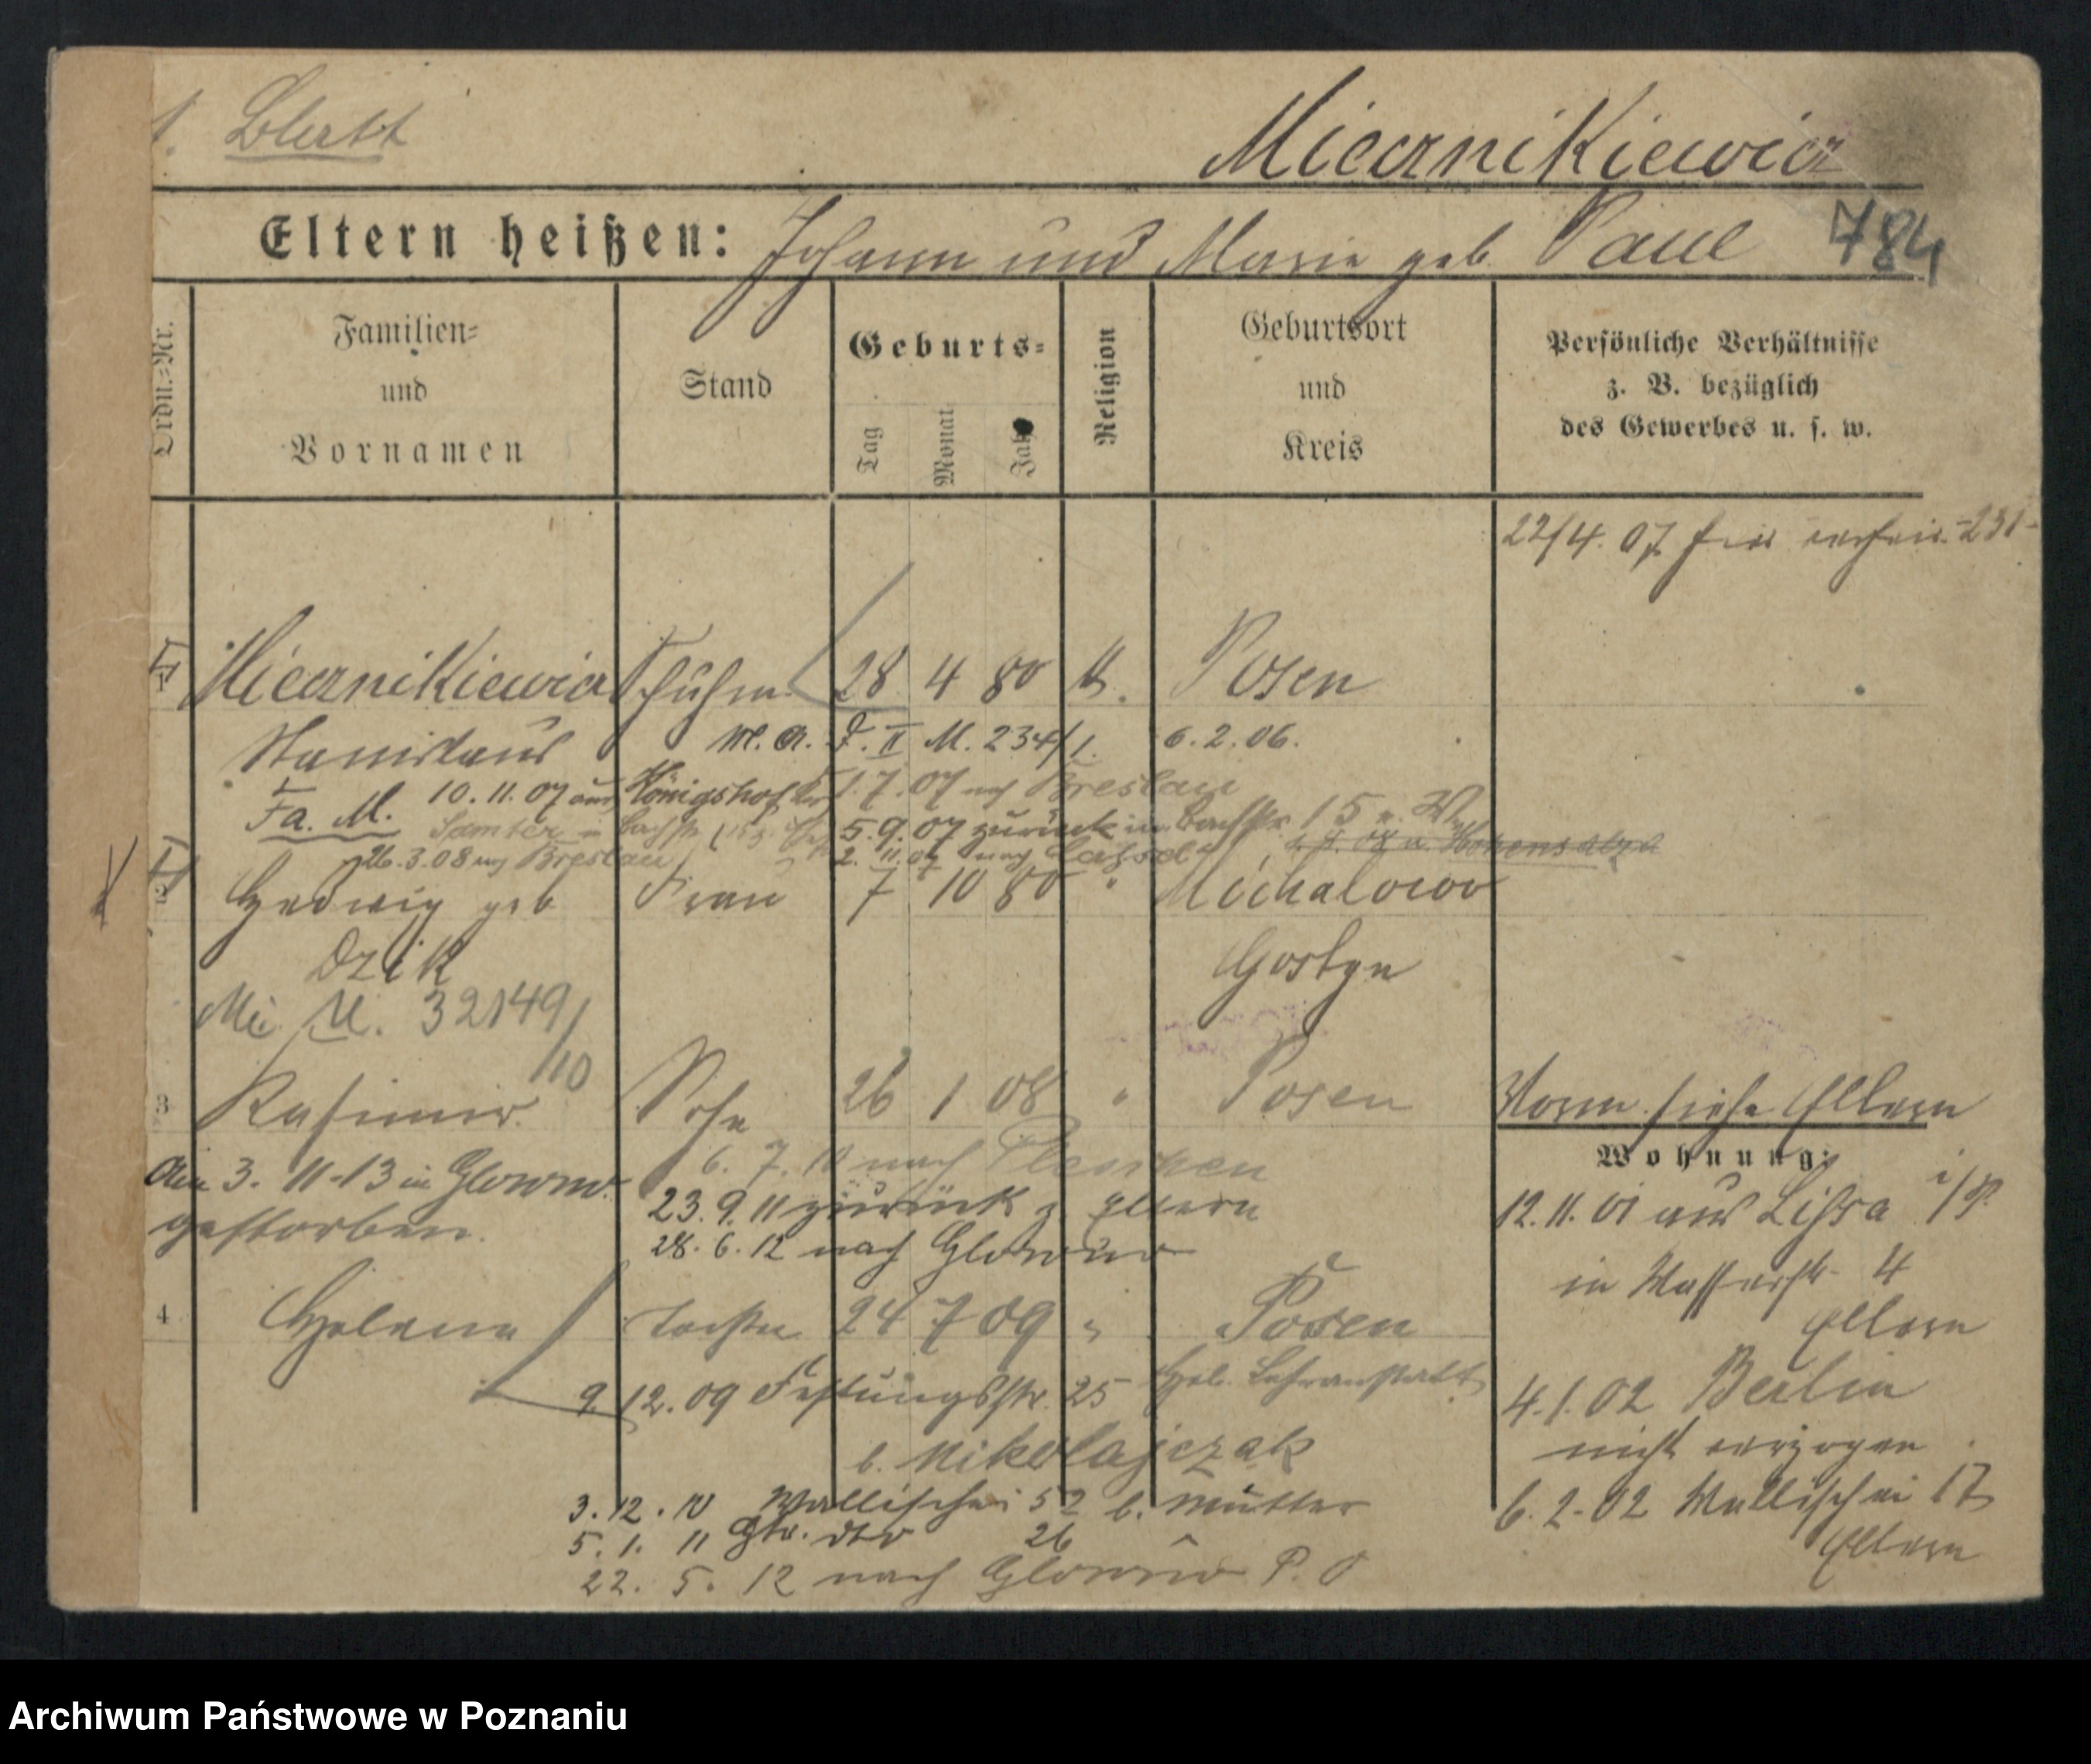 1. Blatt
Miecznikiewicz
784
Eltern heißen: Johann und Marie geb. Paul
Ordn.-Nr.
Familien- und Vornamen
Stand
Geburts-
Tag
Monat
Jahr
Religion
Geburtsort und Kreis
Persönliche Verhältnisse
z. B. bezüglich
des Gewerbes u. s. w.
22/4. 07
Miecznikiewicz Schuhm. 28 4 80 k. Posen
Stanislaus M. A. F. II M. 234/1. 6.2.06.
10.11.07 aus Königshof 1.7.07 nach Breslau
Fa. M. Samter 5.9.07 zurück in Bachstr. 15
26.3.08 nach Breslau 2.11.07 nach Hohensalza
Hedwig geb. Frau 7 10 80 " Michalowo
Dzik Gostyn
M. 32149/10
3 Kasimir Sohn 26 1 08 " Posen
Vorm. siehe Eltern
Am 3.11.13 in Glowno
gestorben.
6.7.10 nach Pleschen
23.9.11 zurück z. Eltern
28.6.12 nach Glowno
Wohnung:
12.11.01 aus Lissa i/P.
in Wasserstr. 4
Eltern
4 Helene Tochter 24 7 09 " Posen
9.12.09 Festungsstr. 25 Lehranstalt
b. Mikolajczak
4.1.02 Berlin
nicht verzogen
3.12.10 Wallischei 52 b. Mutter
6.2.02 Wallischei 17
Eltern
5.1.11 dto 26
22.5.12 nach Glowno P. O
Archiwum Państwowe w Poznaniu